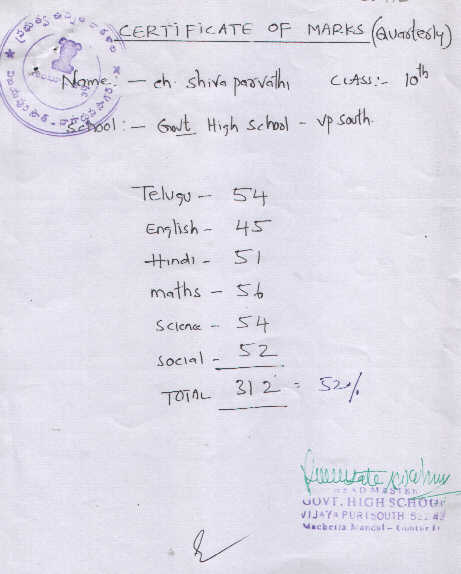 CERTIFICATE OF MARKS (Quarterly)
Name:- ch. Shiva parvathi CLASS:- 10th
School:- Govt High School - vp south.
Telugu - 54
English - 45
Hindi - 51
maths - 56
Science - 54
Social - 52
TOTAL 312 = 52%
HEAD MASTER
GOVT. HIGH SCHOOL
VIJAYA PURI SOUTH
Mandal - Guntur